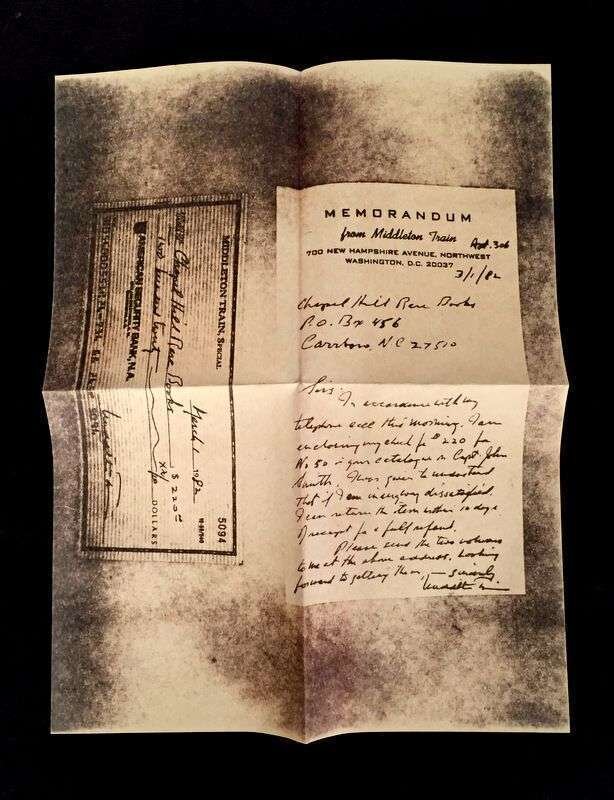 MEMORANDUM
from Middleton Train Apt. 306
700 NEW HAMPSHIRE AVENUE, NORTHWEST
WASHINGTON, D.C. 20037
3/1/82
Chapel Hill Rare Books
P.O. Bx 456
Carrboro, NC 27510
Sirs:
In accordance with my
telephone call this morning, I am
enclosing my check for $220 for
No 50 in your catalogue on Capt. John
Smith. I was given to understand
that if I am in any way dissatisfied,
I can return the item within 10 days
of receipt for a full refund.
Please send the two volumes
to me at the above address. Looking
forward to getting them, — sincerely
MIDDLETON TRAIN, SPECIAL
5094
March 1 1982
Chapel Hill Rare Books $ 220
Two hundred twenty DOLLARS
AMERICAN SECURITY BANK, N.A.